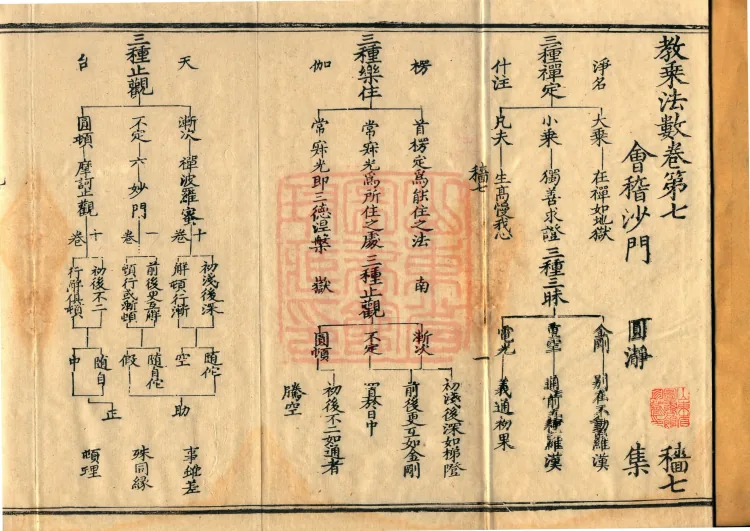 教乘法數卷第七
會稽沙門 圓瀞 集
穡七
淨名
三種禪定
什注
大乘 在禪如地獄
小乘 獨善求證
凡夫 生高慢我心
三種三昧
金剛 別在不動羅漢
重空 通前種羅漢
電光 義通初果
穡七
一
楞
三種樂住
伽
首楞定爲能住之法
常寂光爲所住之處
常寂光即三德涅槃
南
三種止觀
嶽
漸次 初淺後深如梯隥
不定 前後更互如金剛
置 日中
圓頓 初後不二如通者
騰空
天
三種止觀
台
漸次 禪波羅蜜 十卷
初淺後深
解頓行漸
隨佗
空
不定 六妙門 一卷
前後更互解
頓行或漸頓
隨自佗
假
圓頓 摩訶止觀 十卷
初後不二
行解俱頓
隨自
中
助
正
事雖差
殊同緣
頓理